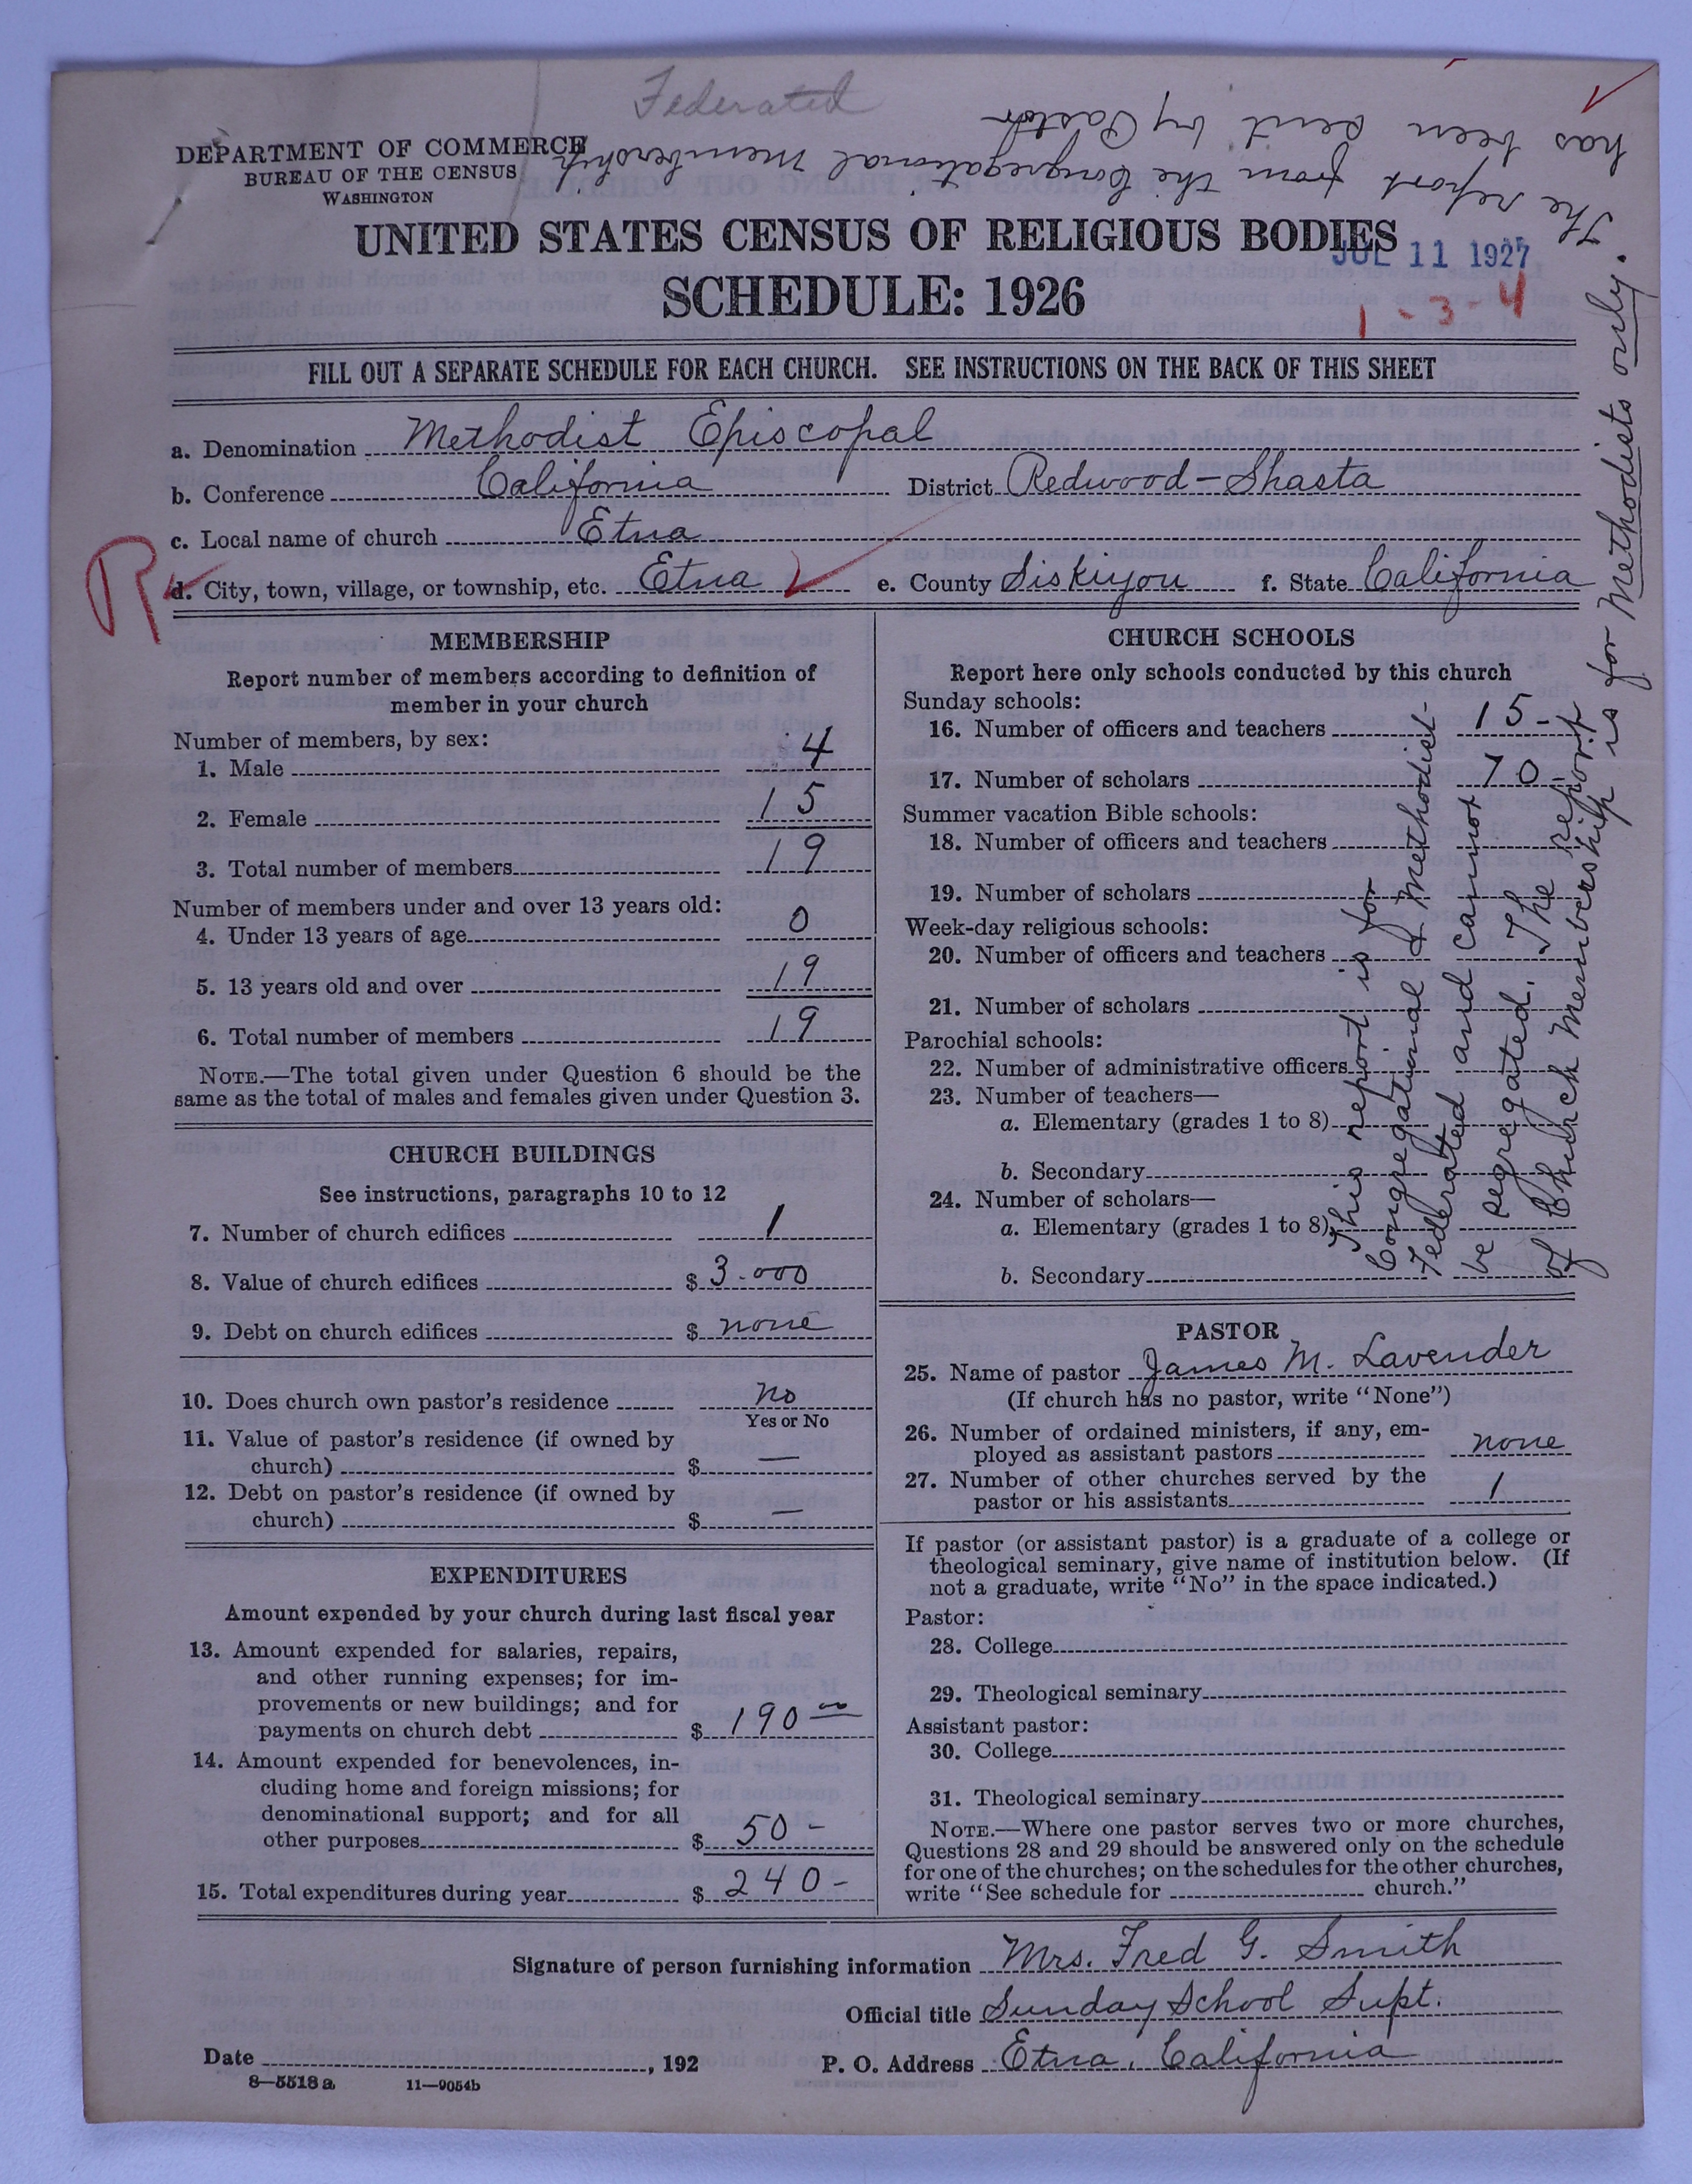 Federated
The report from the Congregational Membership
has been sent by Pastor
DEPARTMENT OF COMMERCE
BUREAU OF THE CENSUS
WASHINGTON
UNITED STATES CENSUS OF RELIGIOUS BODIES
JUL 11 1927
SCHEDULE: 1926
1 - 3 - 4
FILL OUT A SEPARATE SCHEDULE FOR EACH CHURCH. SEE INSTRUCTIONS ON THE BACK OF THIS SHEET
a. Denomination Methodist Episcopal
b. Conference California District Redwood-Shasta
c. Local name of church Etna
R
d. City, town, village, or township, etc. Etna e. County Siskiyou f. State California
MEMBERSHIP
Report number of members according to definition of
member in your church
Number of members, by sex:
1. Male 4
2. Female 15
3. Total number of members 19
Number of members under and over 13 years old:
4. Under 13 years of age 0
5. 13 years old and over 19
6. Total number of members 19
NOTE.—The total given under Question 6 should be the
same as the total of males and females given under Question 3.
CHURCH BUILDINGS
See instructions, paragraphs 10 to 12
7. Number of church edifices 1
8. Value of church edifices $ 3.000
9. Debt on church edifices $ none
10. Does church own pastor's residence no
Yes or No
11. Value of pastor's residence (if owned by
church) $ —
12. Debt on pastor's residence (if owned by
church) $ —
EXPENDITURES
Amount expended by your church during last fiscal year
13. Amount expended for salaries, repairs,
and other running expenses; for im-
provements or new buildings; and for
payments on church debt $ 190 00
14. Amount expended for benevolences, in-
cluding home and foreign missions; for
denominational support; and for all
other purposes $ 50 -
15. Total expenditures during year $ 240 -
CHURCH SCHOOLS
Report here only schools conducted by this church
Sunday schools:
16. Number of officers and teachers 15-
17. Number of scholars 70-
Summer vacation Bible schools:
18. Number of officers and teachers
19. Number of scholars
Week-day religious schools:
20. Number of officers and teachers
21. Number of scholars
Parochial schools:
22. Number of administrative officers
23. Number of teachers—
a. Elementary (grades 1 to 8)
b. Secondary
24. Number of scholars—
a. Elementary (grades 1 to 8)
b. Secondary
This report is for
Congregational & Methodist-
Federated and cannot
be segregated. The report
of Church Membership is for Methodists only.
PASTOR
25. Name of pastor James M. Lavender
(If church has no pastor, write "None")
26. Number of ordained ministers, if any, em-
ployed as assistant pastors none
27. Number of other churches served by the
pastor or his assistants 1
If pastor (or assistant pastor) is a graduate of a college or
theological seminary, give name of institution below. (If
not a graduate, write "No" in the space indicated.)
Pastor:
28. College
29. Theological seminary
Assistant pastor:
30. College
31. Theological seminary
NOTE.—Where one pastor serves two or more churches,
Questions 28 and 29 should be answered only on the schedule
for one of the churches; on the schedules for the other churches,
write "See schedule for church."
Signature of person furnishing information Mrs. Fred G. Smith
Official title Sunday School Supt.
Date , 192 P. O. Address Etna, California
8—5518 a 11—9054b